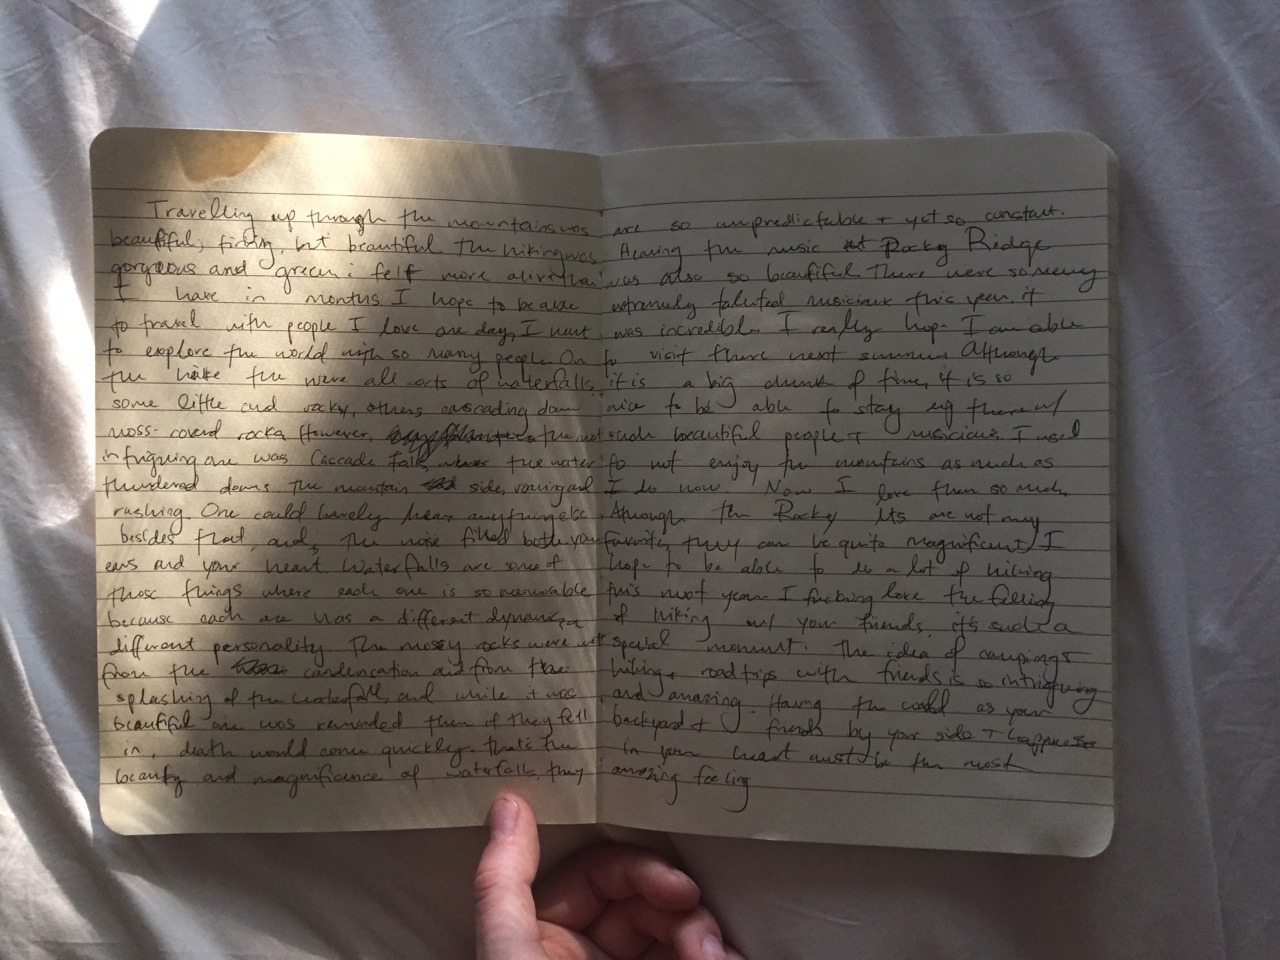 Travelling up through the mountains was
beautiful, tiring, but beautiful. The hiking was
gorgeous and green i felt more alive than
I have in months. I hope to be able
to travel with people I love one day, I want
to explore the world with so many people. On
the hike the were all sorts of waterfalls,
some little and rocky, others cascading down
moss-coverd rocks. However, the most
intriguing one was Cascade falls, the water
thundered down the mountain side, roaring and
rushing. One could barely hear anything else
besides that, and, the noise filled both your
ears and your heart. Waterfalls are some of
those things where each one is so memorable
because each one has a different dynamic, a
different personality. The mossy rocks were wet
from the condencation and from the
splashing of the waterfall, and while it was
beautiful one was reminded then if they fell
in, death would come quickly. that's the
beauty and magnificance of waterfalls, they
are so unpredictable + yet so constant.
Hearing the music at Rocky Ridge
was also so beautiful. There were so many
extremely talented musicians this year, it
was incredible. I really hope I am able
to visit there next summer. Although
it is a big chunk of time, it is so
nice to be able to stay up there w/
such beautiful people + musicians. I used
to not enjoy the mountains as much as
I do now. Now I love them so much.
Although the Rocky Mts are not my
favorite, they can be quite magnificent. I
hope to be able to do a lot of hiking
this next year. I fucking love the feeling
of hiking w/ your friends, it's such a
special moment. The idea of camping +
hiking + roadtrips with friends is so intriguing
and amazing. Having the world as your
backyard + friends by your side + happiness
in your heart must be the most
amazing feeling